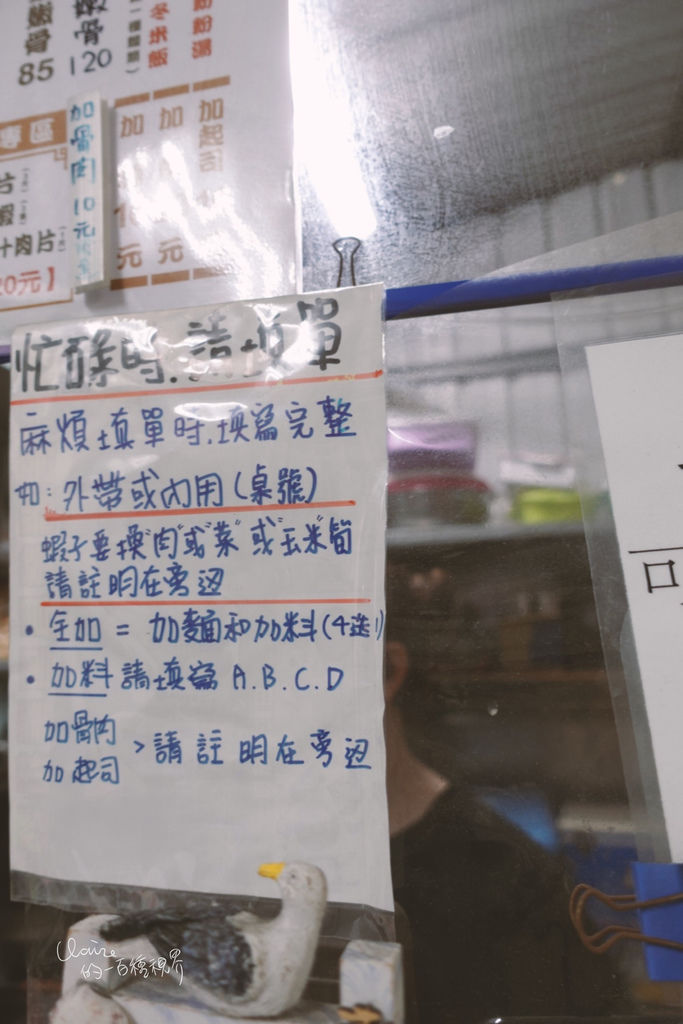 嫩骨 85
嫩骨 120
冬米飯
加骨肉 10元
加 元
加 元
加起司
專區
片
蝦
汁肉片
20元】
忙碌時.請填單
麻煩填單時.填寫完整
如:外帶或內用(桌號)
蝦子要換"肉"或"菜"或"玉米筍"
請註明在旁边
• 全加 = 加麵和加料(4选1)
• 加料 請填寫 A.B.C.D
加骨肉
加起司 > 請註明在旁边
Claire
的一百種視界